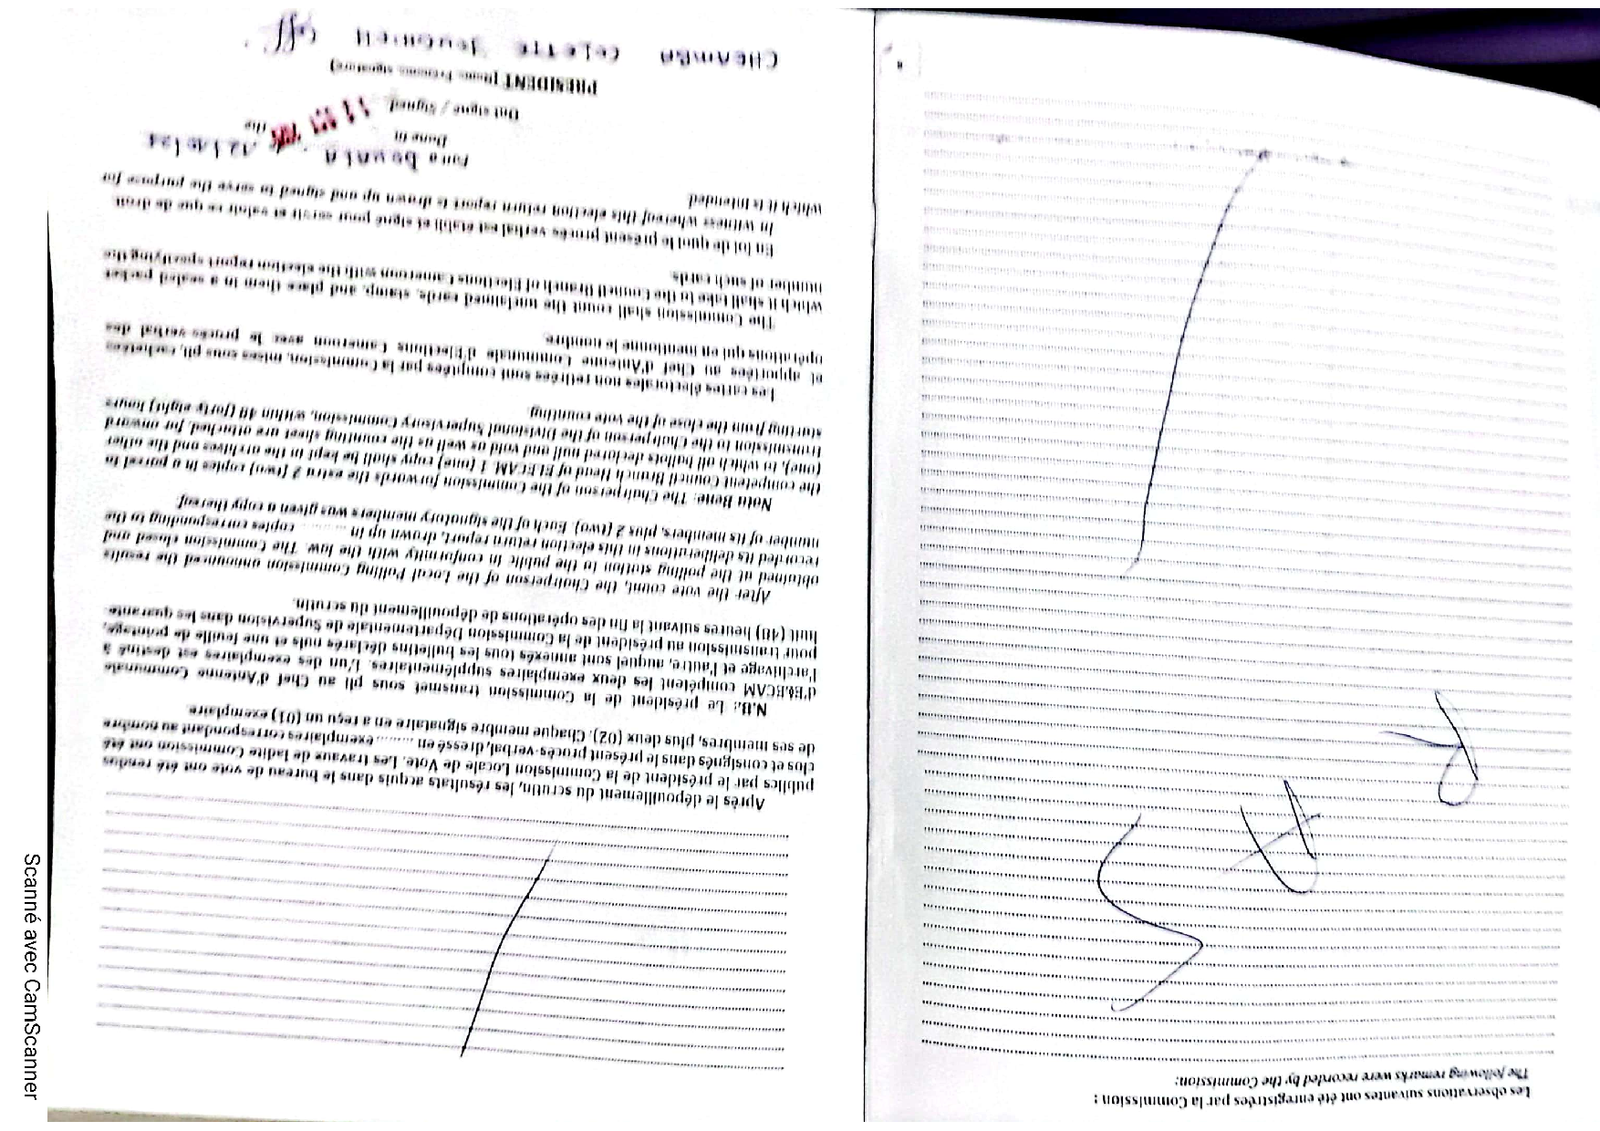 Les observations suivantes ont été enregistrées par la Commission :
The following remarks were recorded by the Commission:
Après le dépouillement du scrutin, les résultats acquis dans le bureau de vote ont été rendus
publics par le président de la Commission Locale de Vote. Les travaux de ladite Commission ont été
clos et consignés dans le présent procès-verbal, dressé en ......... exemplaires correspondant au nombre
de ses membres, plus deux (02). Chaque membre signataire en a reçu un (01) exemplaire.
N.B.: Le président de la Commission transmet sous pli au Chef d'Antenne Communale
d'ELECAM compétent les deux exemplaires supplémentaires. L'un des exemplaires est destiné à
l'archivage et l'autre, auquel sont annexés tous les bulletins déclarés nuls et une feuille de pointage,
pour transmission au président de la Commission Départementale de Supervision dans les quarante-
huit (48) heures suivant la fin des opérations de dépouillement du scrutin.
After the vote count, the Chairperson of the Local Polling Commission announced the results
obtained at the polling station to the public in conformity with the law. The Commission closed and
recorded its deliberations in this election return report, drawn up in ......... copies corresponding to the
number of its members, plus 2 (two). Each of the signatory members was given a copy thereof.
Nota Bene: The Chairperson of the Commission forwards the extra 2 (two) copies in a parcel to
the competent Council Branch Head of ELECAM. 1 (one) copy shall be kept in the archives and the other
(one), to which all ballots declared null and void as well as the counting sheet are attached, for onward
transmission to the Chairperson of the Divisional Supervisory Commission, within 48 (forty eight) hours
starting from the close of the vote counting.
Les cartes électorales non retirées sont comptées par la Commission, mises sous pli, cachetées
et apportées au Chef d'Antenne Communale d'Elections Cameroon avec le procès verbal des
opérations qui en mentionne le nombre.
The Commission shall count the unclaimed cards, stamp, and place them in a sealed packet
which it shall take to the Council Branch of Elections Cameroon with the election report specifying the
number of such cards.
En foi de quoi le présent procès verbal est établi et signé pour servir et valoir ce que de droit.
In witness whereof this election return report is drawn up and signed to serve the purpose for
which it is intended.
Fait à DOUALA
Done in the
Ont signé / Signed
PRESIDENT (Noms, Prénoms, signature)
COLETTE
Scanné avec CamScanner